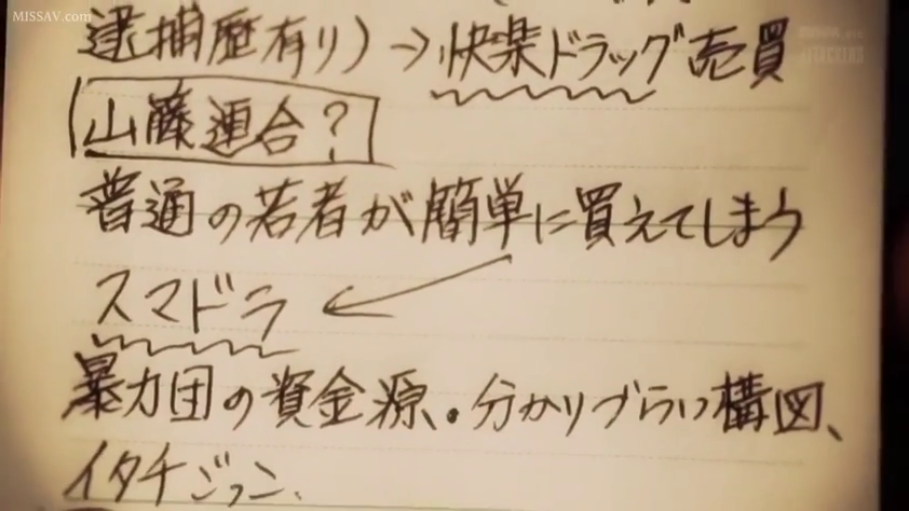 MISSAV.COM
逮捕歴有り)→快楽ドラッグ売買
山藤連合?
普通の若者が簡単に買えてしまう
スマドラ
暴力団の資金源、・分かりづらい構図、
イタチごっこ、